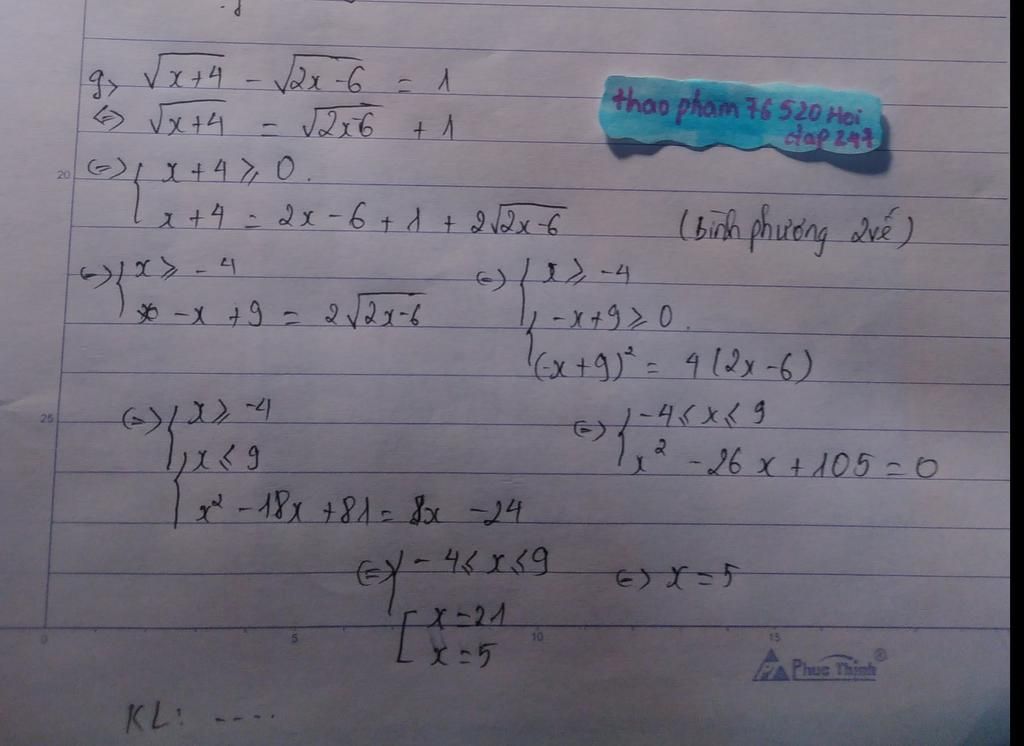 g> √(x+4) - √(2x-6) = 1
thao pham 76 520 Hoi
dap 247
<=> √(x+4) = √(2x-6) + 1
<=> { x+4 ≥ 0.
20
x+4 = 2x-6+1+2√(2x-6) (bình phương 2 vế)
<=> { x ≥ -4
-x+9 = 2√(2x-6)
<=> { x ≥ -4
-x+9 ≥ 0.
(-x+9)² = 4(2x-6)
25
<=> { x ≥ -4
x ≤ 9
x² - 18x + 81 = 8x - 24
<=> { -4 ≤ x ≤ 9
x² - 26x + 105 = 0
<=> { -4 ≤ x ≤ 9
[ x = 21
x = 5
<=> x = 5
0 5 10 15
Phuc Thinh®
KL: ....